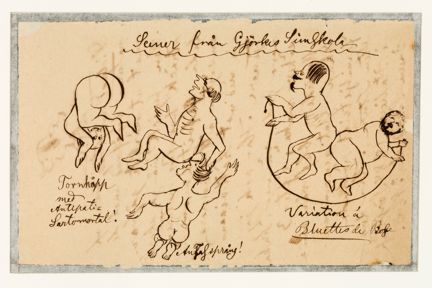 Scener från Gjörkes Simskola
Tornhopp
med
Antipati=
Saltomortal!
Ansatssprång!
Variation à
Bluettes de